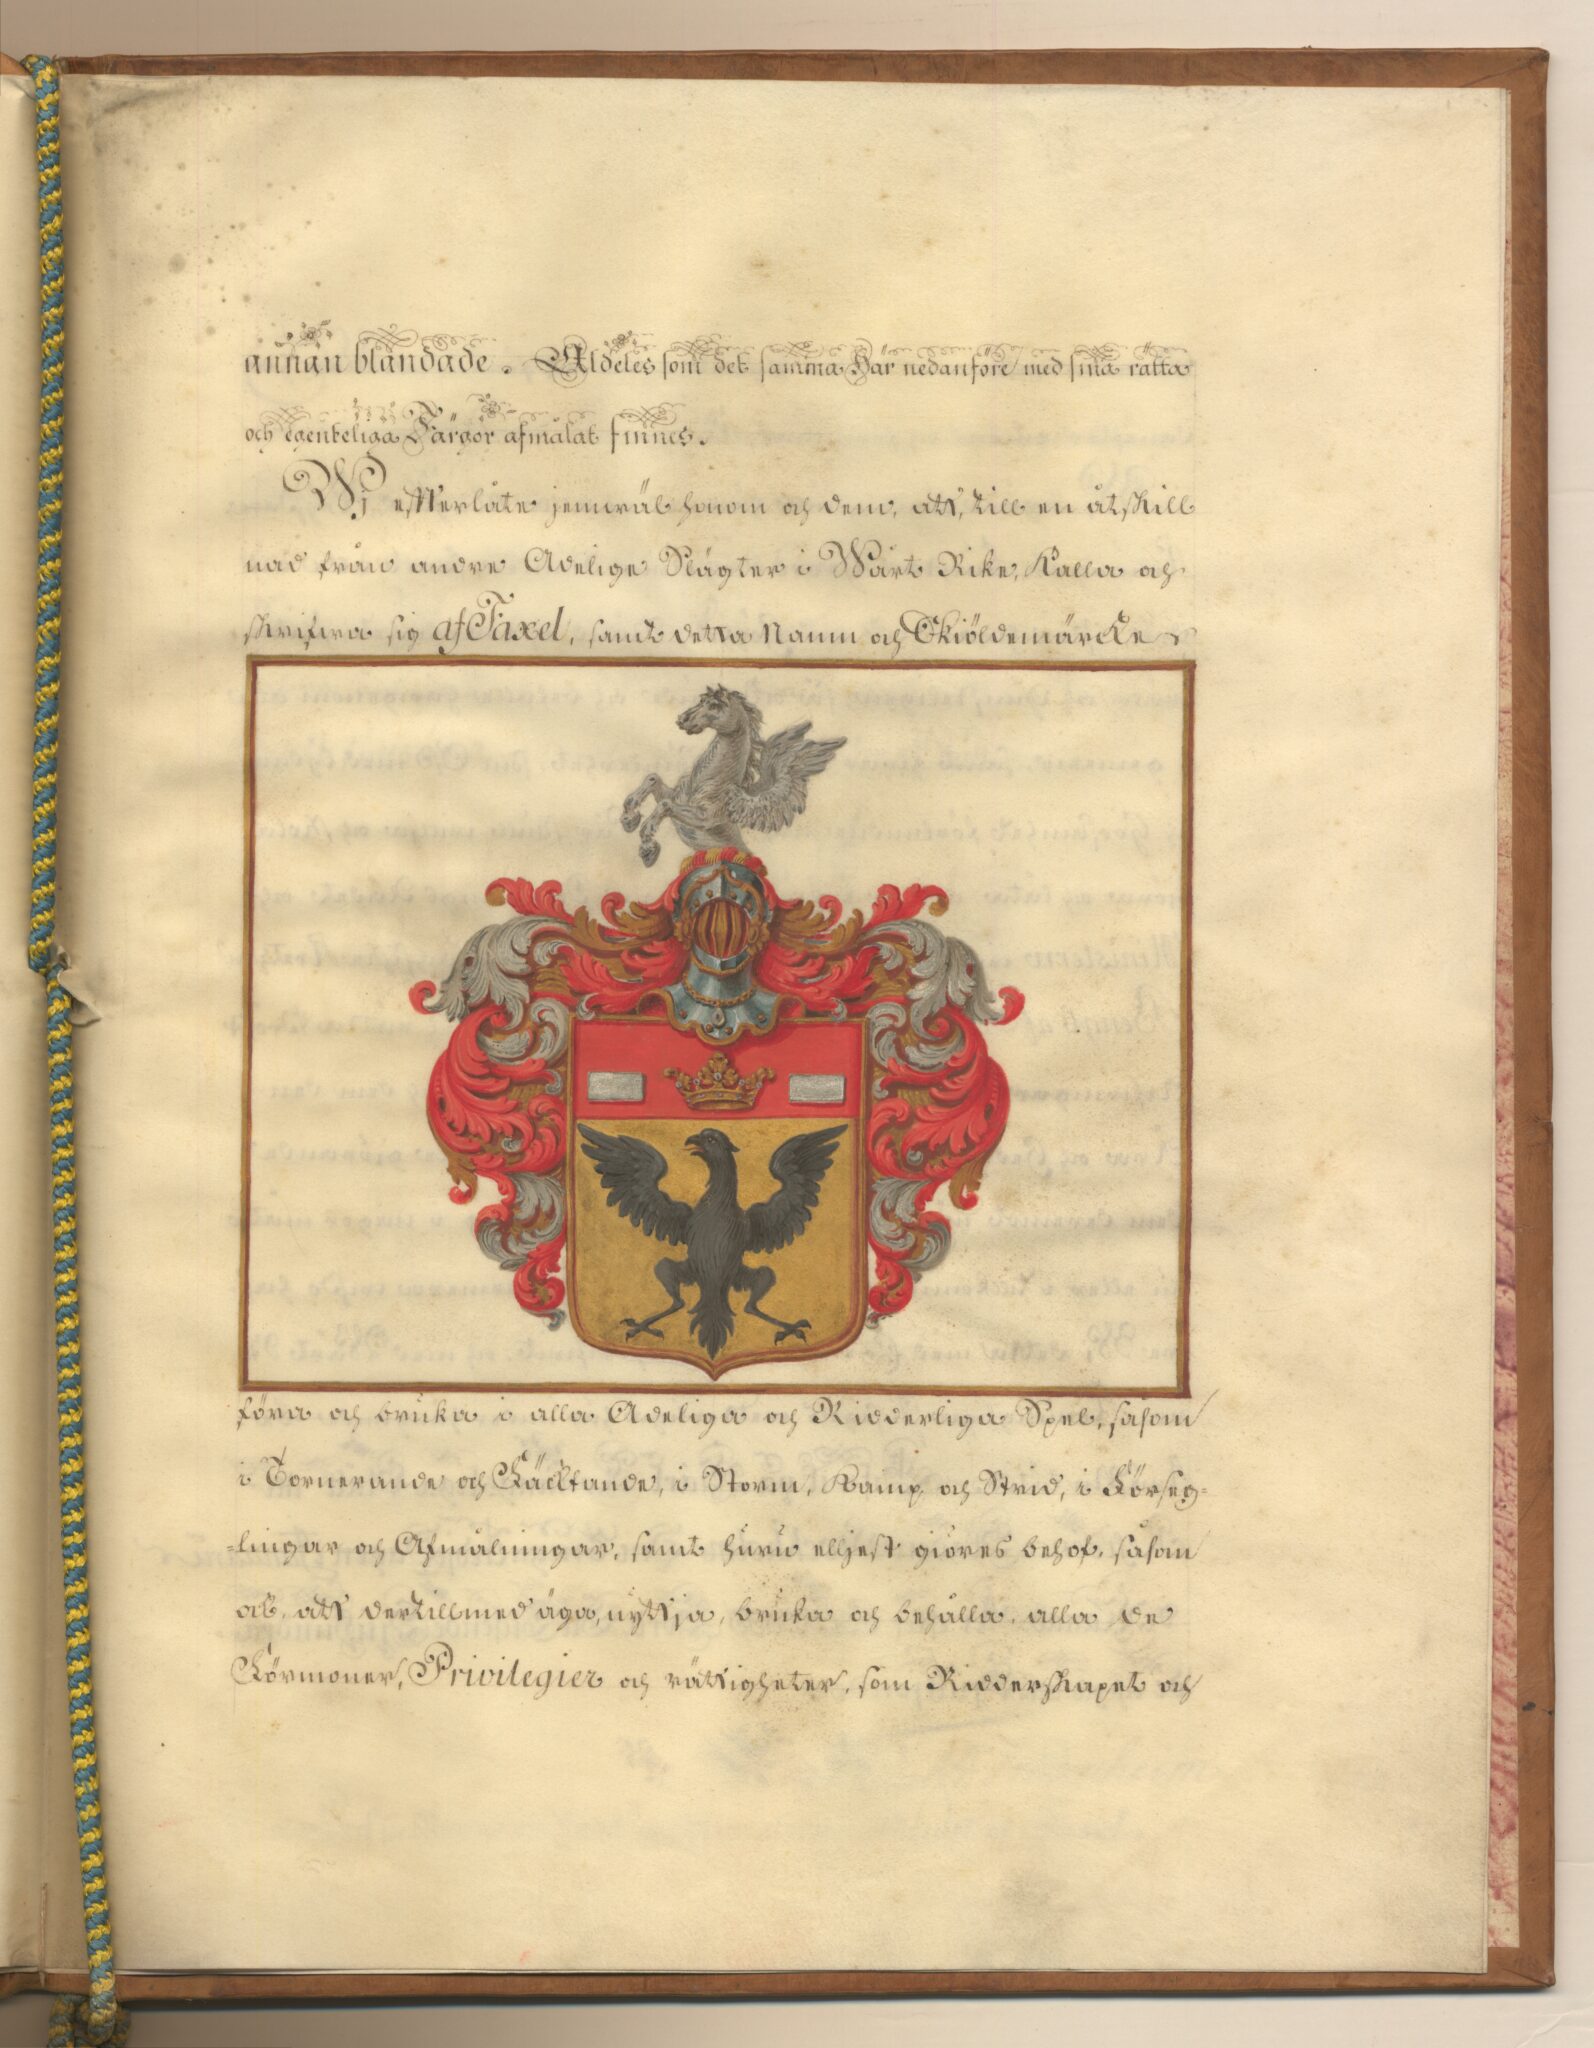 annan blandade. Aldeles som det samma här nedanföre med sina rätta
och egenteliga Färgor afmålat finnes.
Wi efterlåte jemwäl honom och dem, att, till en åtskill
nad från andre Adelige Slägter i Wårt Rike, Kalla och
skrifwa sig af Faxel, samt detta Namn och Skiöldemärcke
föra och bruka i alla Adeliga och Ridderliga Spel, såsom
i Tornerande och Fäcktande, i Storm, Kamp och Strid, i Förseg=
=lingar och Afmålningar, samt huru elljest giöres behof, såsom
ock, att dertillmed äga, nyttja, bruka och behålla, alla de
Förmoner, Privilegier och rättigheter, som Ridderskapet och